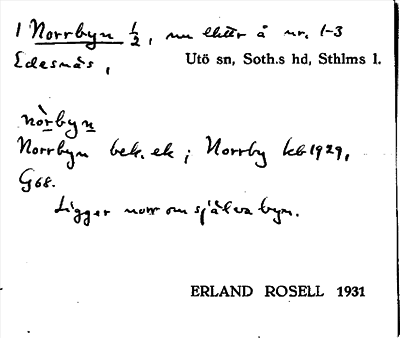 1 Norrbyn ½, nu lhtr å nr. 1-3
Edesnäs,
Utö sn, Soth.s hd, Sthlms l.
nòrbyn
Norrbyn bek. ek; Norrby kb 1929,
G68.
Ligger norr om själva byn.
ERLAND ROSELL 1931